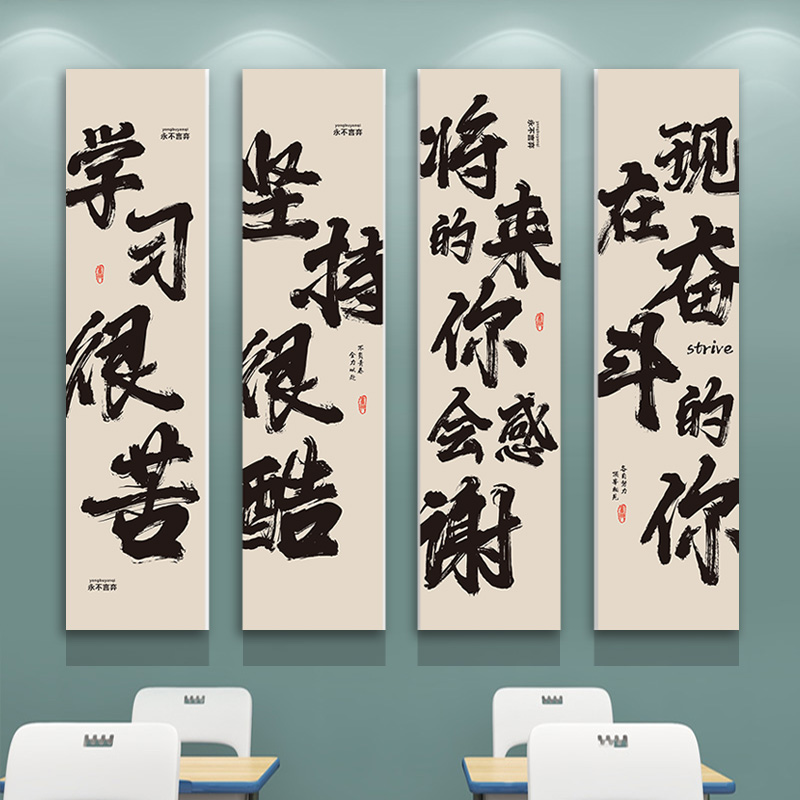 yongbuyanqi
永不言弃
学习很苦
yongbuyanqi
永不言弃
yongbuyanqi
永不言弃
坚持很酷
不负青春
全力以赴
yongbuyanqi
永不言弃
将来的你会感谢
现在奋斗的你
strive
各自努力
顶峰相见